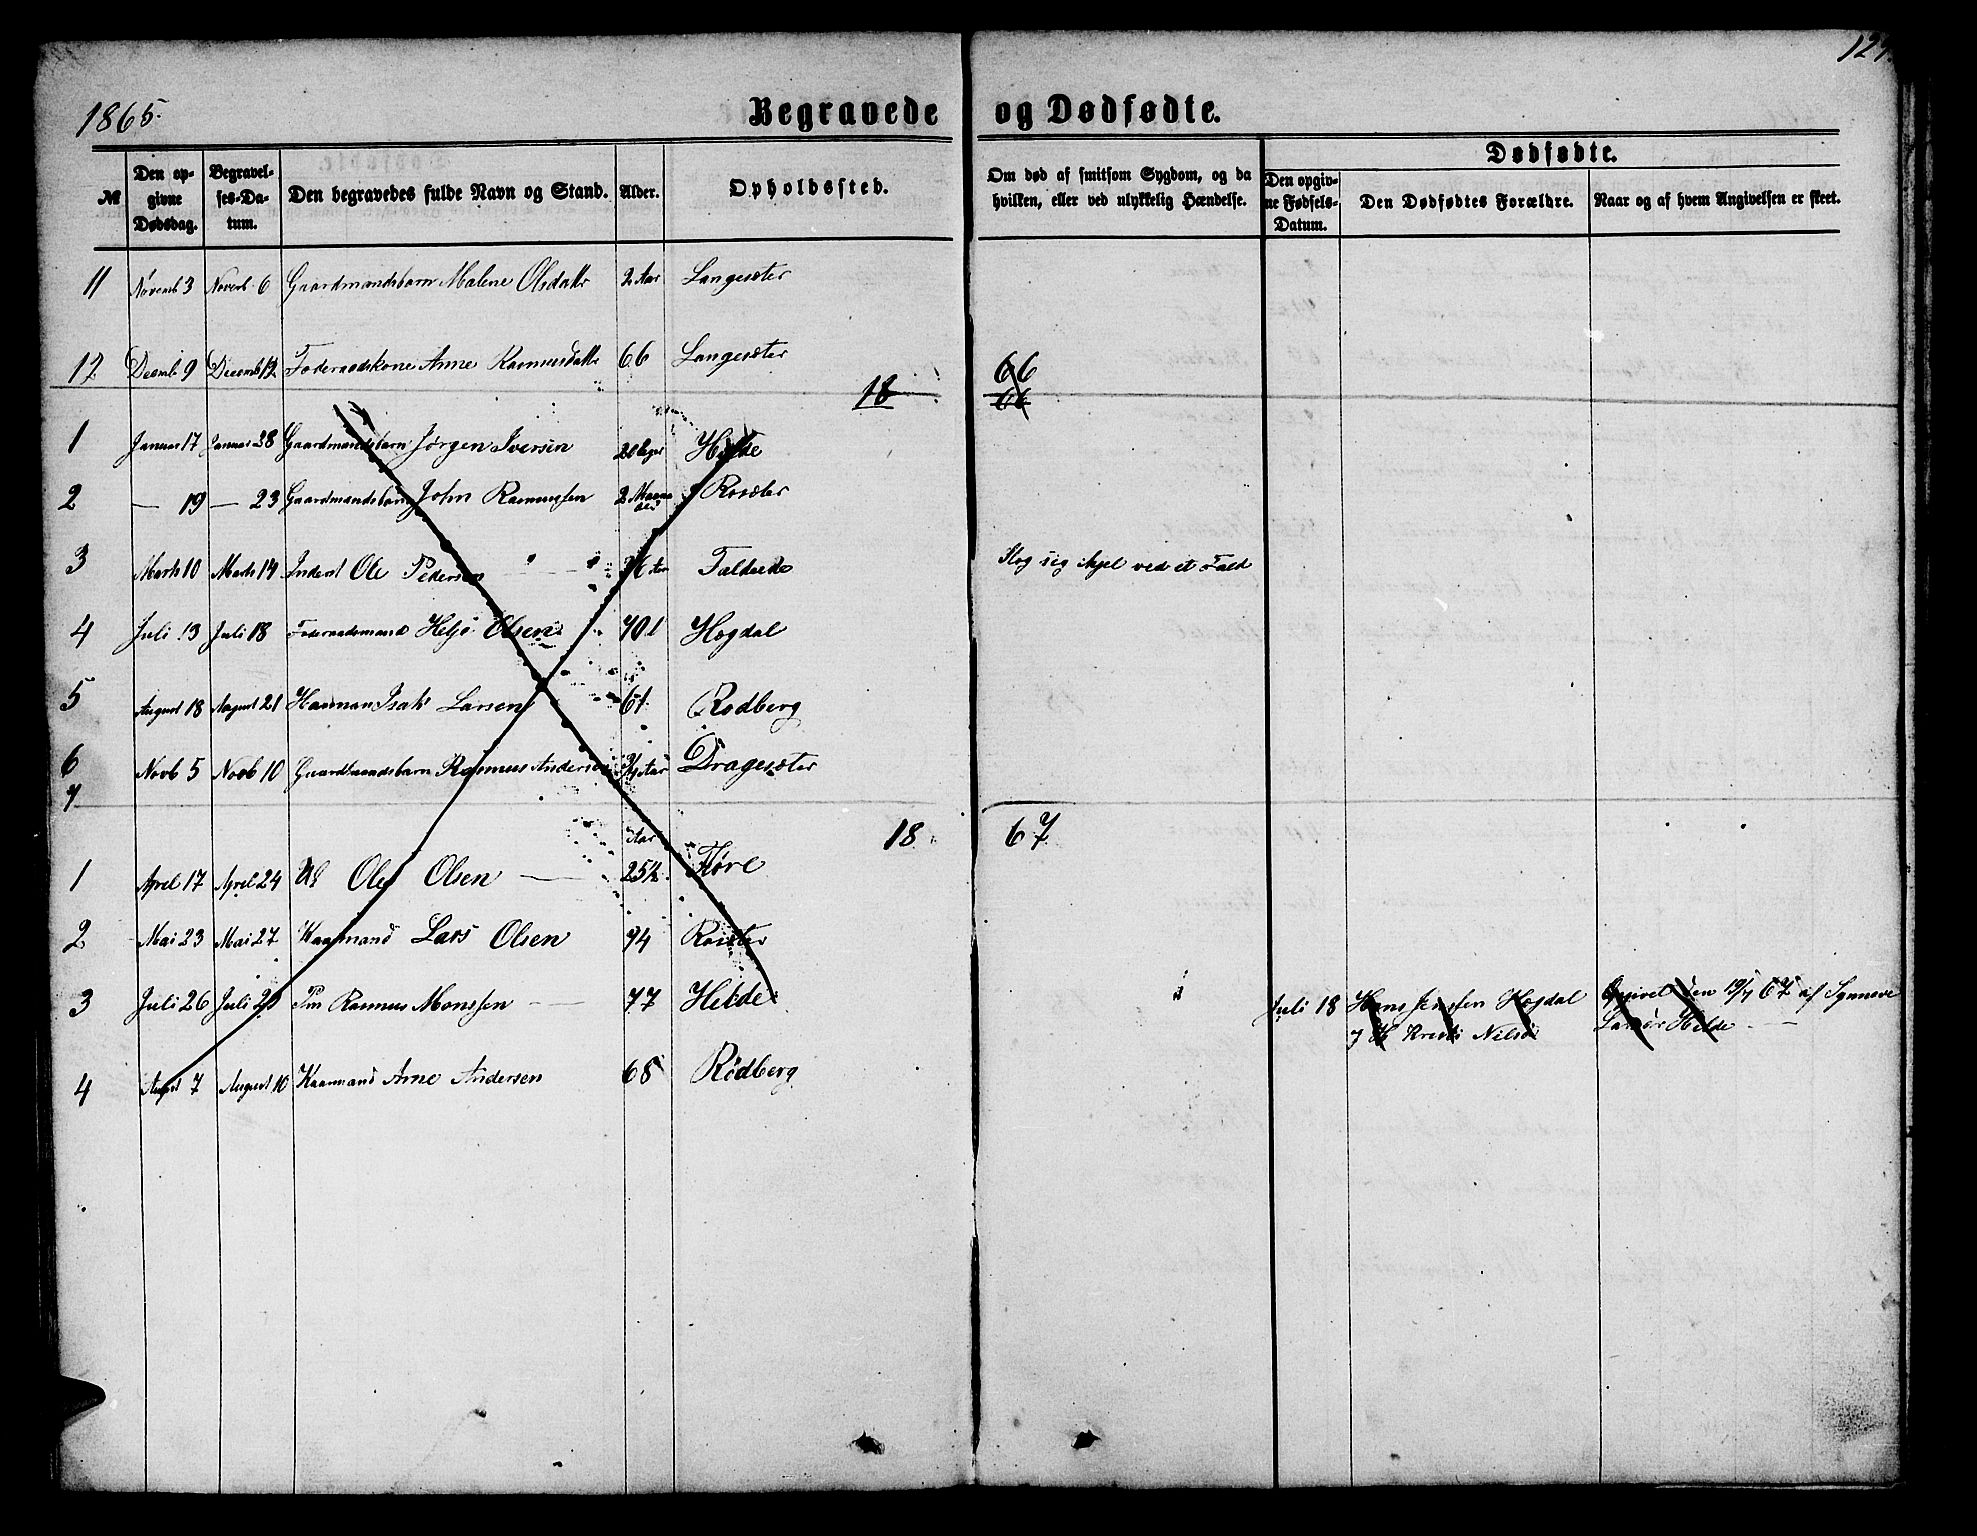 127.
1865.
Begravede og Dødfødte.
№
Den opgivne Dødsdag.
Begravelses-Datum.
Den begravedes fulde Navn og Stand.
Alder.
Opholdssted.
Om død af smitsom Sygdom, og da hvilken, eller ved ulykkelig Hændelse.
Dødfødte.
Den opgivne Fødsels-Datum.
Den Dødfødtes Forældre.
Naar og af hvem Angivelsen er skeet.
11 Novemb 3 Novemb 6 Gaardmandsbarn Malene Olsdattr 2 Aar Langesæter
12 Decemb 9 Decemb 12 Føderaadskone Anne Rasmusdattr 66 Langesæter
18 66
66
1 Januar 17 Januar 28 Gaardmandsbarn Jørgen Iversen Helde
2 — 19 — 23 Gaardmandsbarn John Rasmussen 2 Maaneder Rosæter
3 Marts 10 Marts 14 Inderst Ole Pedersen Slog sig ihjel ved et Fald
4 Juli 13 Juli 18 Føderaadsmand Helje Olsen Hogdal
5 August 18 August 21 Kaarman Isak Larsen 61 Rødberg
6 Novb 5 Novb 10 Gaardmandsbarn Rasmus Andersen Dragesæter
7
18 67
Aar
1 Aprel 17 Aprel 24 Ug Ole Olsen — 25½ Føre
2 Mai 23 Mai 27 Kaarmand Lars Olsen 74 Rosæter
3 Juli 26 Juli 29 Rasmus Monssen — 77 Helde Juli 18 Hans Jenssen Hogdal Opgivet den 19/7 67 af Synneve
Nilsd Helde —
4 August 7 August 10 Kaarmand Arne Andersen 68 Rødberg